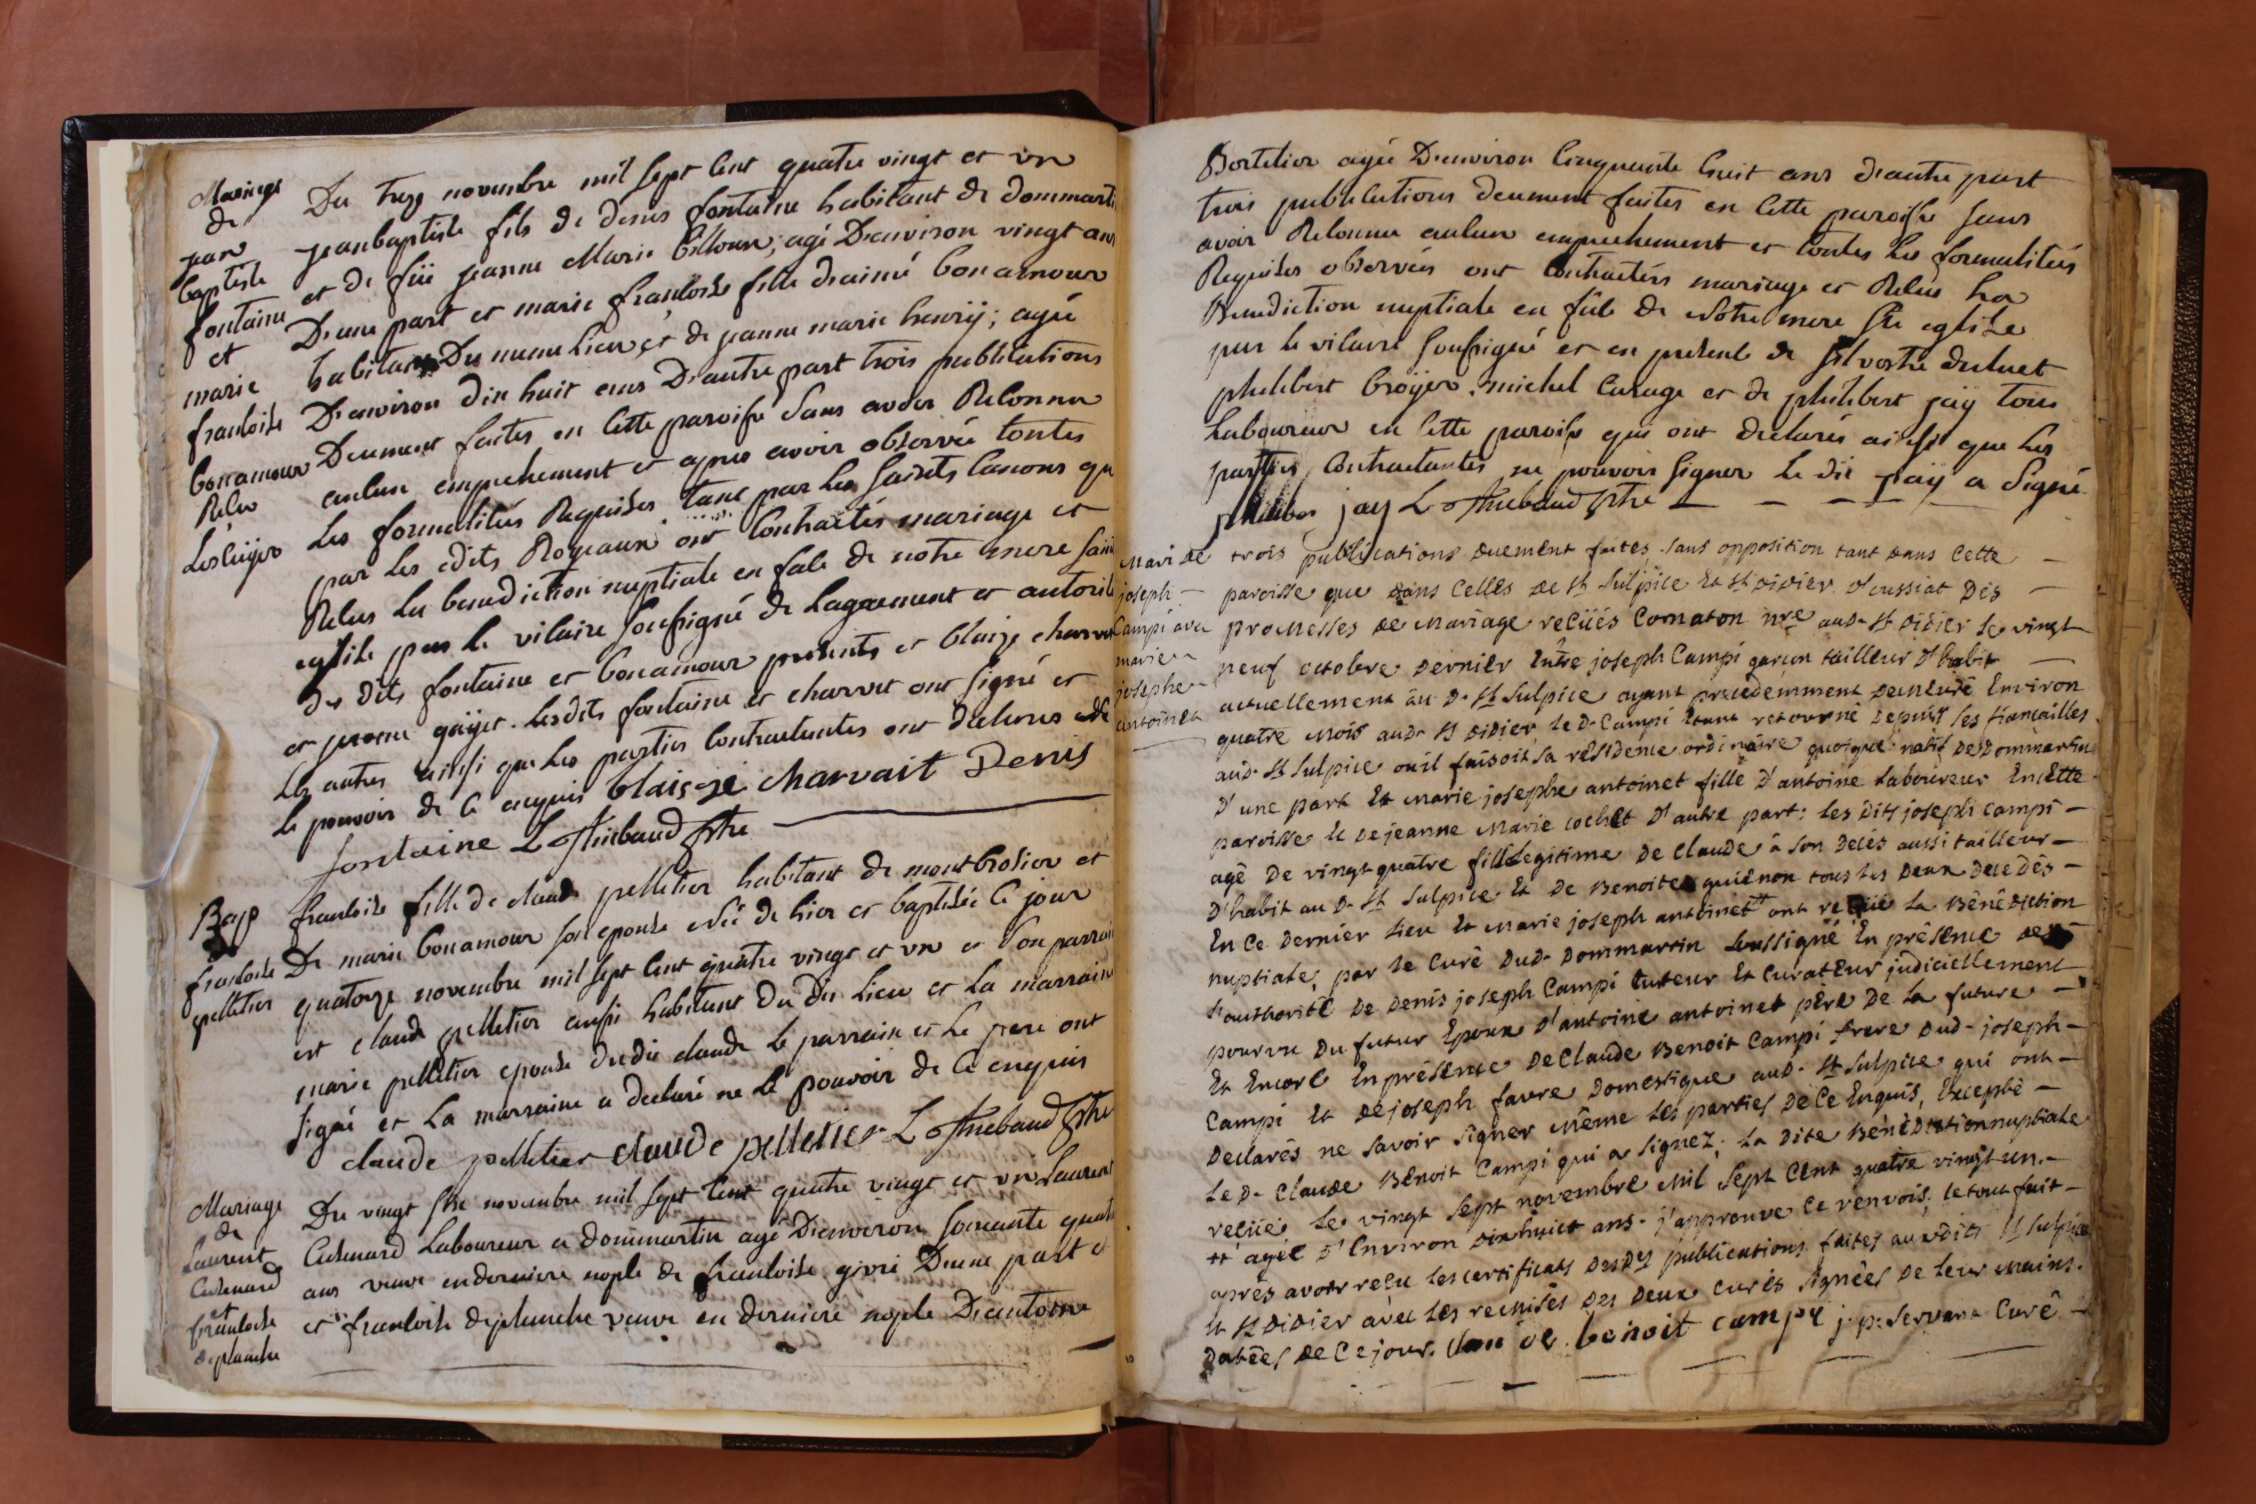 Mariage
de
jean
baptiste
fontaine
et
marie
francoise
bonamour
Du treze novembre mil sept cent quatre vingt et un
jeanbaptiste fils de denis fontaine habitant de dommarti
et de füe jeanne Marie billoux; agé D'environ vingt ans
D'une part et marie francoise fille d'aimé bonamour
habitans Du meme lieu et de jeanne marie henrÿ; agée
D'environ dix huit ans D'autre part trois publications
Deument faites en Cette paroisse Sans avoir Reconnu
aucun empechement et apres avoir observée toutes
Les formalités Requises tant par Les saints Canons que
par Les edits Royaux ont Contractés mariage et
Relus La benediction nuptiale en face de notre mere sain
eglise par Le vicaire soussigné de Lagrement et autorité
des dits fontaine et bonamour presents et blaize charvet
et pierre gaÿet. Lesdits fontaine et charvet ont signé et
Les autres ainsi que Les parties Contractantes ont declarés ne
Le pouvoir de Ce enquis blaisse charvait Denis
fontaine Lothiebaud ptre
Bap
de
francoise
pelletier
francoise fille de claude pelletier habitant de montbrosier et
De marie bonamour son epouse Née de hier et baptisée Ce jour
quatorze novembre mil sept cent quatre vingt et un et son parrain
est claude pelletier aussi habitant Du dit Lieu et La marraine
marie pelletier epouse dudit claude Le parrain et Le pere ont
signé et La marraine a declaré ne Le pouvoir de Ce enquis
claude pelletier claude pelletier Lothiebaud ptre
Mariage
de
Laurent
et
francoise
deplanche
Du vingt sixe novembre mil sept cent quatre vingt et un Laurent
Laboureur a dommartin agé D'environ soixante quatre
ans veuve en derniere nopce de francoise givri D'une part et
et francoise deplanche veuve en derniere nopce D'antoine
Bortelier agée D'environ Cinquante huit ans d'autre part
trois publications deument faites en Cette paroisse sans
avoir Reconnu aucun empechement et toutes Les formalités
Requises observées ont Contractés mariage et Relus La
Benediction nuptiale en face de Notre mere Ste eglise
par Le vicaire soussigné et en presence de silvestre duluet
philibert broÿer. michel Carage et de philibert jaÿ tous
Laboureur en Cette paroisse qui ont declarés ainsi que Les
parties Contractantes ne pouvoir signer Le dit jaÿ a signé
philiber jay Lothiebaud ptre
Mari de
joseph
Campi avec
marie
josephe
antoinet
trois publications duement faites sans opposition tant dans Cette
paroisse que dans Celles de st Sulpice Et st Didier d'aussiat Des
promesses de Mariage reçûës Comaton nre aud. st Didier le vingt
neuf octobre dernier Entre joseph Campi garçon tailleur d'habit
actuellement au d. st Sulpice ayant precedemment demeuré Environ
quatre Mois aud. st Didier le d. Campi Etant retourné depuis ses fiançailles
aud. st Sulpice ou il faisoit sa résidence ordinaire quoique natif de Dommartin
d'une part Et Marie josephe antoinet fille d'antoine laboureur En Cette
paroisse Et de jeanne Marie cochet d'autre part: les dits joseph campi
agé de vingt quatre fils legitime de claude à son decès aussi tailleur
d'habit au d. st Sulpice Et de Benoite quienon tous les deux decedés
En Ce dernier lieu Et Marie joseph antoinet ++ ont reçüe la Bénédiction
nuptiale, par le Curé dud. Dommartin soussigné En présence de
l'authorité de denis joseph Campi tuteur Et Curateur judiciellement
pourvu du futur Epoux d'antoine antoinet père de la future
Et Encore En présence de Claude Benoit Campi frere dud. joseph
Campi Et de joseph favre domestique aud. st Sulpice qui ont
declarés ne savoir signer même les parties de Ce Enquis, Excepté
le d. Claude Benoit Campi qui a signez; la dite Bénédiction nuptiale
reçüe le vingt sept novembre Mil Sept Cent quatre vingt un.
++ agée d'Environ dix huict ans. j'approuve Ce renvois; le tout fait
après avoir reçu les certificats desdes publications faites aux dits st Sulpice
Et st Didier avec les remises des deux Curés signées de leur mains.
Datées de Ce jour. Clau de benoit campi j. p. Servant Curé